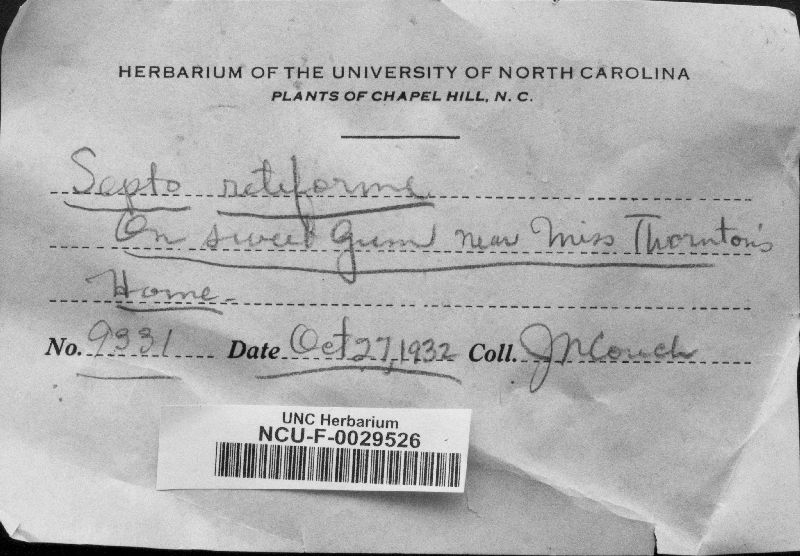 HERBARIUM OF THE UNIVERSITY OF NORTH CAROLINA
PLANTS OF CHAPEL HILL, N. C.
Septo retiforme
On sweet gum near Miss Thornton's
Home.
No. 9331 Date Oct 27, 1932 Coll. J N Couch
UNC Herbarium
NCU-F-0029526